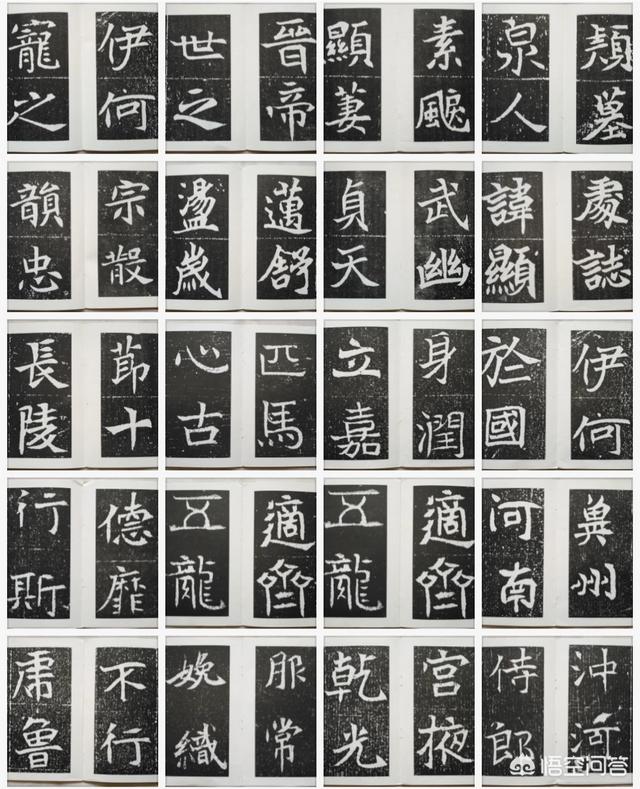 墓
泉人
素飈
顯萋
晉帝
世之
伊何
寵之
處誌
諱顯
武幽
貞天
邁舒
盪歲
宗散
韻忠
伊何
於國
身潤
立嘉
匹馬
心古
節十
長陵
冀州
河南
適齊
五龍
適齊
五龍
德靡
行斯
沖河
侍郎
宮掖
乾光
服常
婉織
不行
魯
悟空问答